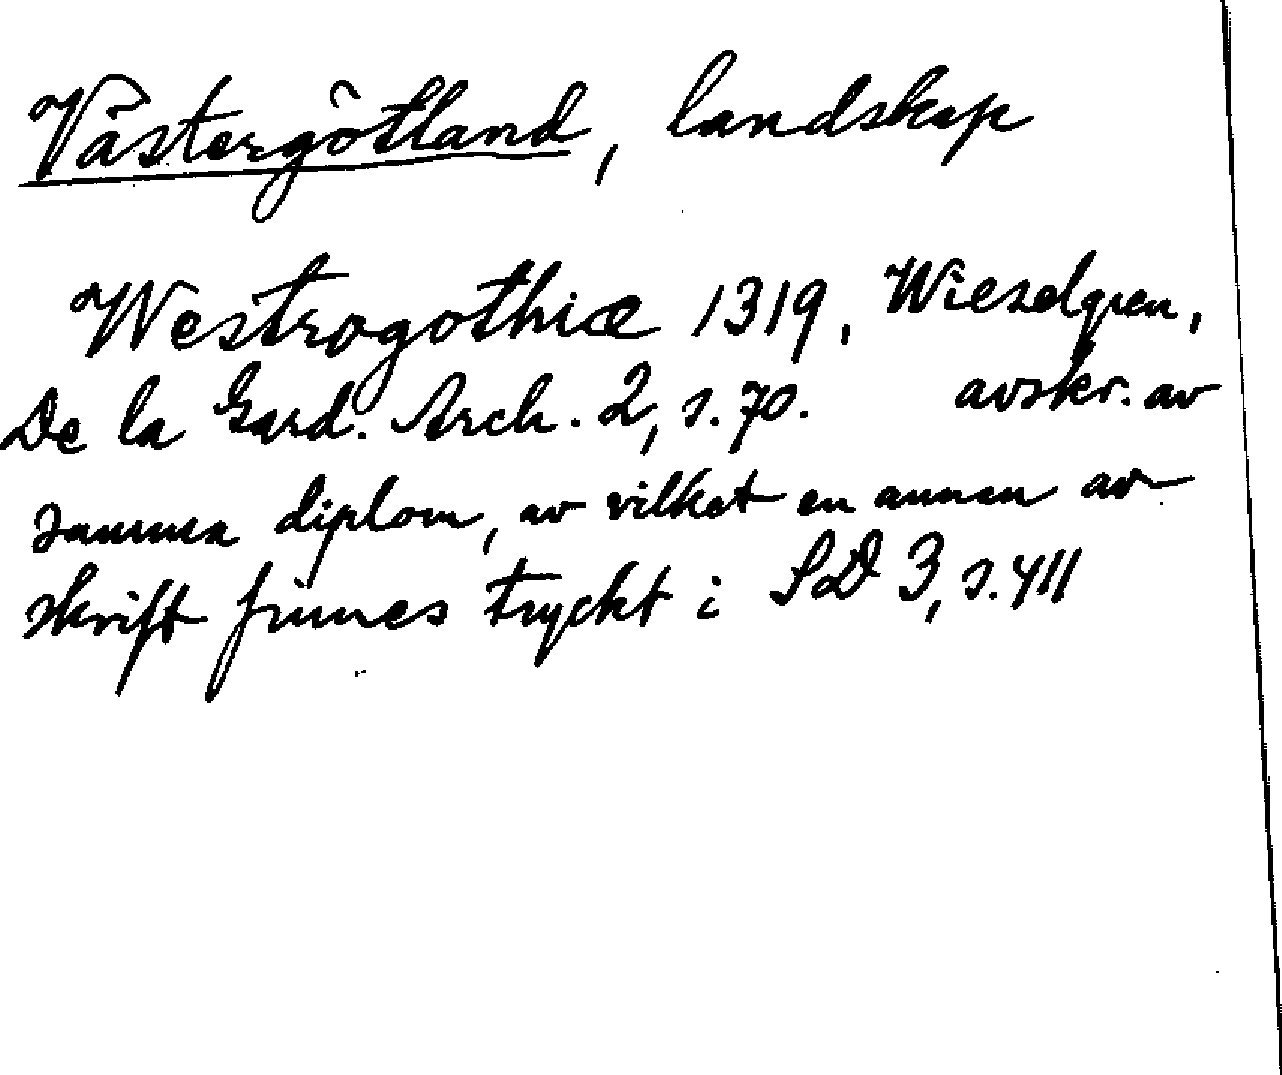 Västergötland, landskap
Westrogothiæ 1319, Wieselgren,
De la Gard. Arch. 2, s. 70. avskr. av
samma diplom, av vilket en annan av
skrift finnes tryckt i SD 3, s. 411